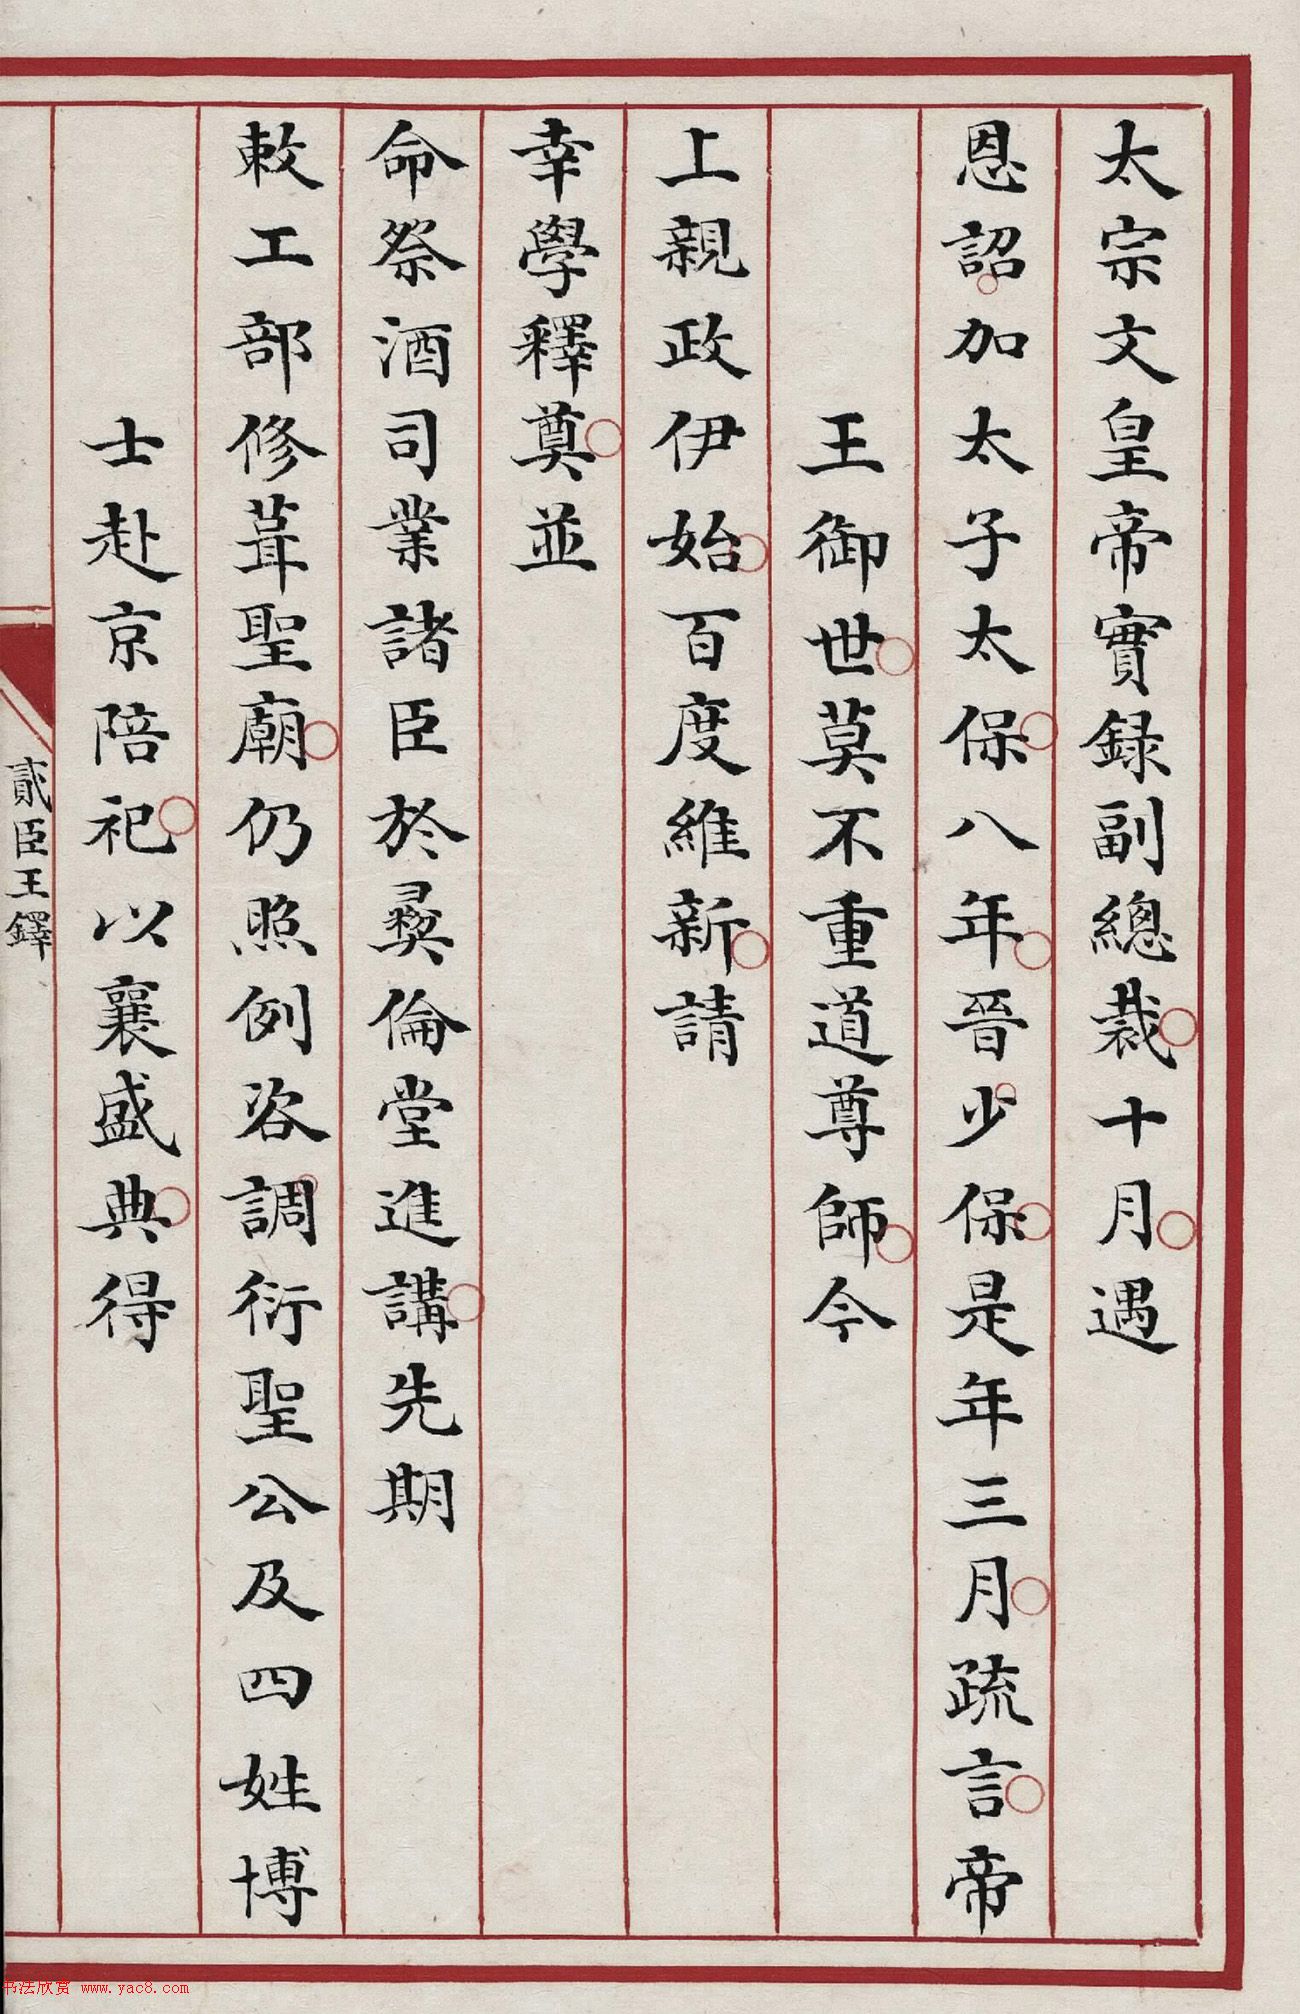 太宗文皇帝實録副總裁十月遇
恩詔加太子太保八年晉少保是年三月疏言帝
王御世莫不重道尊師今
上親政伊始百度維新請
幸學釋奠並
命祭酒司業諸臣於彝倫堂進講先期
敕工部修葺聖廟仍照例咨調衍聖公及四姓博
士赴京陪祀以襄盛典得
貳臣王鐸
书法欣赏 www.yac8.com